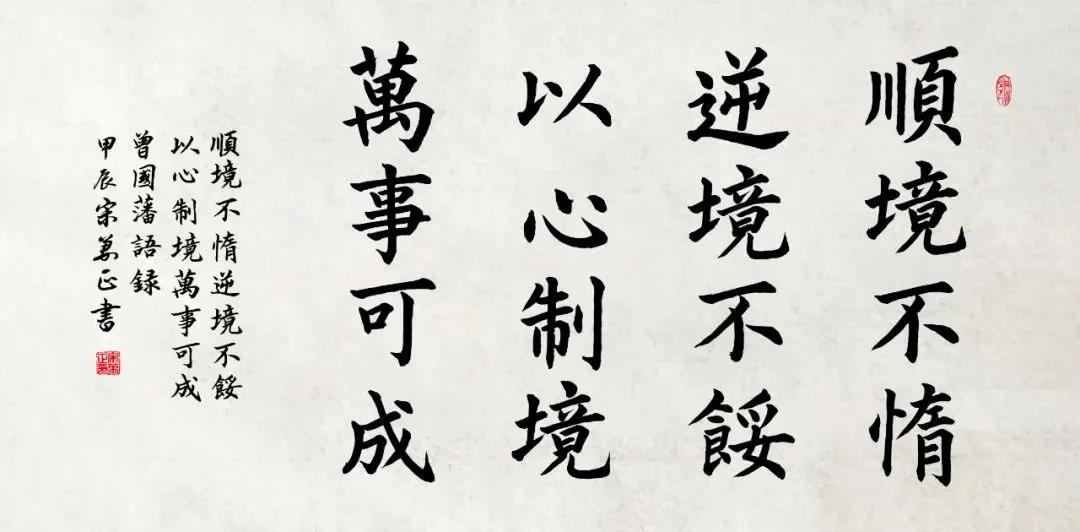 順境不惰
逆境不餒
以心制境
萬事可成
順境不惰逆境不餒
以心制境萬事可成
曾國藩語録
甲辰宗萬正書